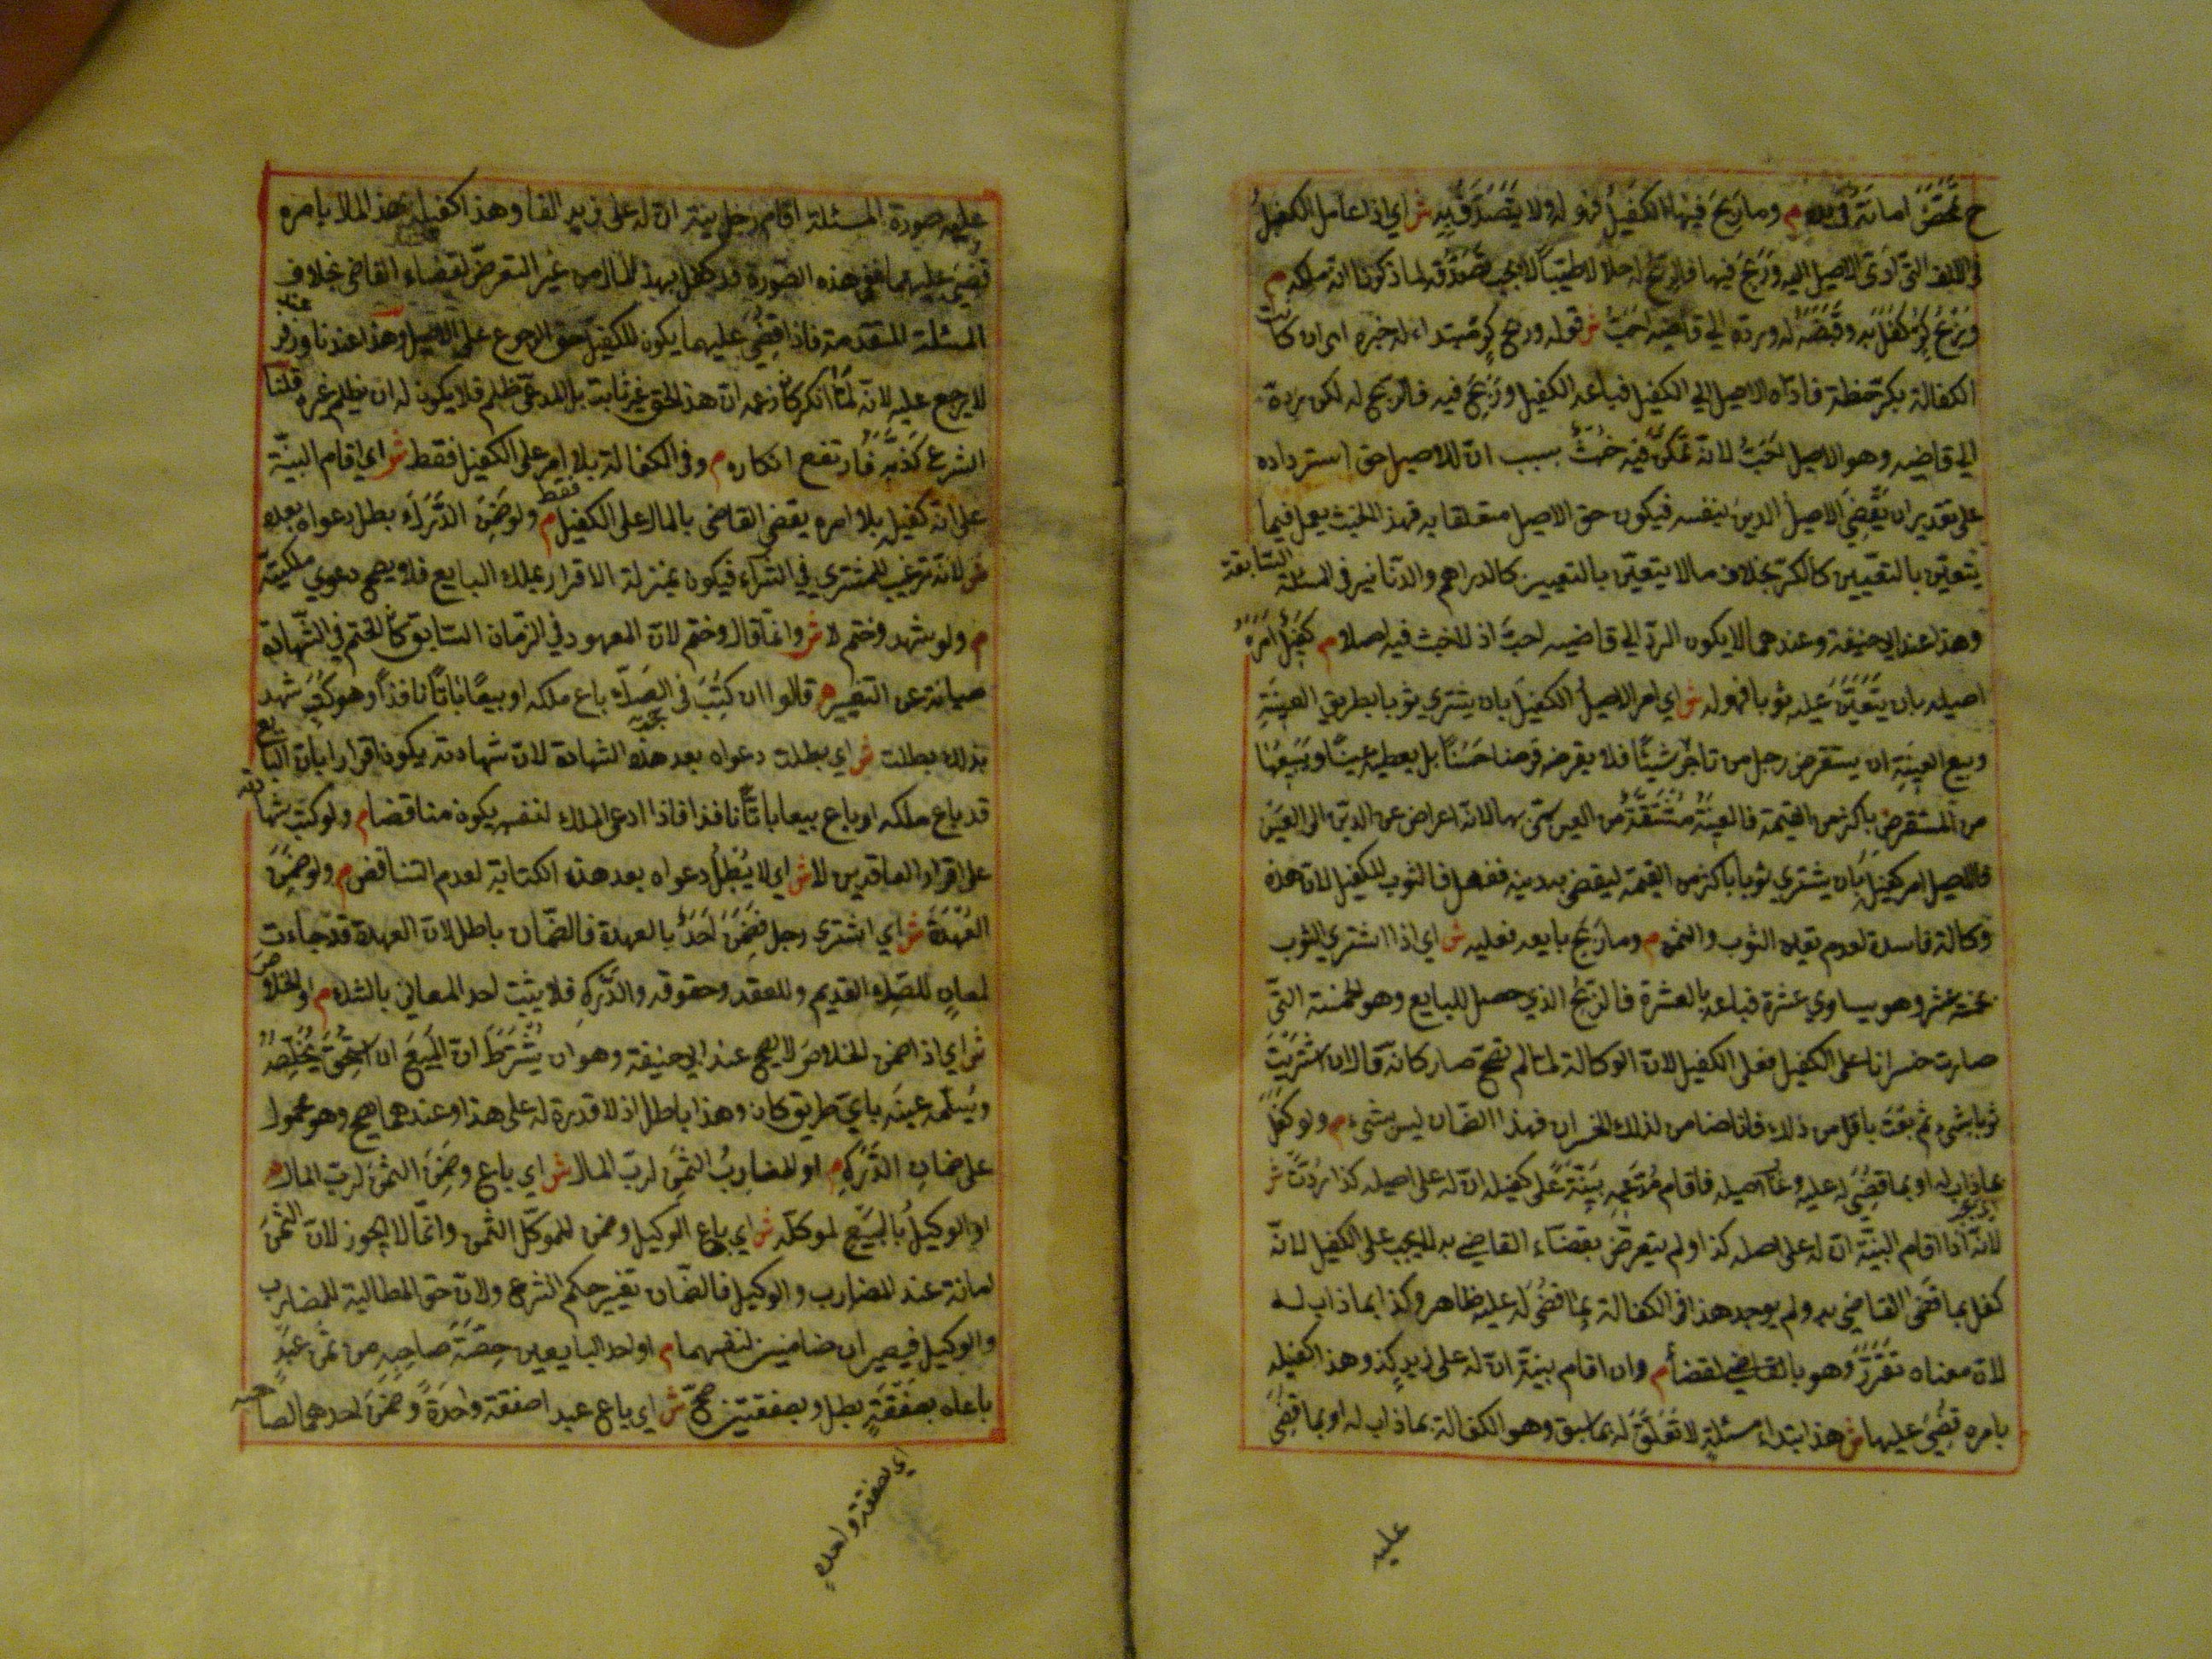 ح تمحّض امانة في يده م وما ربح فيها الكفيل فهو له ولا يتصدق به ش اي اذا عامل الكفيل
في الالف التي ادى الاصيل اليه وربح فيها فالربح له حلالا طيّبا لا يجب تصدّقه لما ذكرنا انه ملكه م
وربح كرّ كفل به وقبضه له وردّه الي قاضيه احبّ ش قوله وربح كرّ مبتداء له خبره اي ان كانت
الكفالة بكرّ حنطة فادّاه الاصيل الي الكفيل فباعه الكفيل وربح فيه فالربح له لكن ردّه
الي قاضيه وهو الاصيل احبّ لانّه تمكّن فيه خبث بسبب انّ للاصيل حق استرداده
على تقدير ان يقضي الاصيل الدين بنفسه فيكون حق الاصيل متعلقا به فهذا الخبث يعمل فيما
يتعيّن بالتعيين كالكرّ بخلاف مالا يتعيّن بالتعيين كالدراهم والدنانير في المسئلة السّابقة
وهذا عند ابي حنيفة وعندهما لا يكون الردّ الي قاضيه احبّ اذ لا خبث فيه اصلا م كفيل امره
اصيله بان يتعيّن عليه ثوبا فهو له ش اي امر الاصيل الكفيل بان يشتري ثوبا بطريق العينة
وبيع العينة ان يستقرض رجل من تاجر شيئا فلا يقرضه قرضا حسنا بل يعطيه عينا ويبيعها
من المستقرض باكثر من القيمة فالعينة مشتقّة من العين سمّي بها لانّه اعراض عن الدين الي العين
فالاصيل امر كفيله بان يشتري ثوبا باكثر من القيمة ليقضي به دينه ففعل فالثوب للكفيل لانّ هذه
وكالة فاسدة لعدم تعيين الثوب والثمن م وما ربح بايعه فعليه ش اي اذا اشتري الثوب
بخمسة عشر وهو يساوي عشرة فباعه بالعشرة فالربح الذي حصل للبايع وهو الخمسة التي
صارت خسرانا على الكفيل فعلى الكفيل لانّ الوكالة لما لم تصح صار كانه قال ان اشتريت
ثوبا بشيء ثم بعت باقل من ذلك فانا ضامن لذلك الخسران فهذا الضمان ليس بشيء م ولو كفل
بما ذاب له او بما قضي له عليه وغاب اصيله فاقام مدّعيه بيّنة على كفيله انّ له على اصيله كذا ردّت ش
لانّه اذا اقام البيّنة انّ له على اصيله كذا ولم يتعرّض بقضاء القاضي به لا يجب على الكفيل لانّه
كفل بما قضى القاضي به ولم يوجد هذا في الكفالة بما قضي له عليه ظاهر وكذا بما ذاب له
لانّ معناه تقرّر وهو بالقاضي لقضأ م وان اقام بيّنة انّ له على زيد كذا وهذا كفيله
بامره قضي عليهما ش هذا ابتداء مسئلة لا تعلّق له بما سبق وهو الكفالة بما ذاب له او بما قضي
عليه
عليه صورة المسئلة اقام رجل بيّنة انّ له على زيد الفا وهذا كفيله بهذا المال بامره
قضي عليهما ففي هذه الصّورة قد كفل بهذا المال من غير التعرّض لقضاء القاضي بخلاف
المسئلة المتقدمة فاذا قضي عليهما يكون للكفيل حق الرجوع على الاصيل وهذا عندنا وعند زفر
لا يرجع عليه لانّه لمّا انكر كان زعمه انّ هذا الحق غير ثابت بل المدعي ظلم فلا يكون له ان يظلم غيره قلنا
الشرع كذّبه فارتفع انكاره م وفي الكفالة بلا امر على الكفيل فقط ش اي اقام البيّنة
على انّه كفيل بلا امره يقضي القاضي بالمال على الكفيل فقط م ولو ضمن الدّرك بطل دعواه بعده
ش لانّه ترغيب للمشتري في الشراء فيكون بمنزلة الاقرار بملك البايع فلا يصح دعوي ملكيّته
م ولو شهد وختم لا ش وانما قال وختم لانّ المعهود في الزمان السّابق كان الختم في الشّهادة
صيانة عن التغيير م قالوا ان كتب في الصكّ باع ملكه او بيعا باتّا نافذا وهو كتب شهد
بذلك بطلت ش اي بطلت دعواه بعد هذه الشهادة لانّ شهادته يكون اقرارا بانّ البايع
قد باع ملكه او باع بيعا باتّا نافذا فاذا ادعى الملك لنفسه يكون مناقضا م ولو كتب شهادته
على اقرار العاقدين لا ش اي لا يبطل دعواه بعد هذه الكتابة لعدم التناقض م ولو ضمن
العهدة ش اي اشتري رجل فضمن احد بالعهدة فالضمان باطل لانّ العهدة قد جاءت
لمعان للصّكّ القديم وللعقد وحقوقه والدّرك فلا يثبت احد المعاني بالشك م او الخلاص
ش اي اذا ضمن الخلاص لا يصح عند ابي حنيفة وهو ان يشترط انّ المبيع ان استحقّ يخلّصه
ويسلّمه عينه بايّ طريق كان وهذا باطل اذ لا قدرة له على هذا وعندهما يصح وهو محمول
على ضمان الدّرك م او المضارب الثمن لربّ المال ش اي باع وضمن الثمن لربّ المال م
او الوكيل بالبيع لموكّله ش اي باع الوكيل وضمن للموكّل الثمن وانّما لا يجوز لانّ الثمن
امانة عند المضارب والوكيل فالضّمان تغيير حكم الشرع ولانّ حق المطالبة للمضارب
والوكيل فيصيران ضامنين لنفسهما م او احد البايعين حصّة صاحبه من ثمن عبد
باعاه بصفقة بطل وبصفقتين صحّ ش اي باع عبدا صفقة واحدة وضمن احدهما لصاحبه
اي بصفقة واحدة